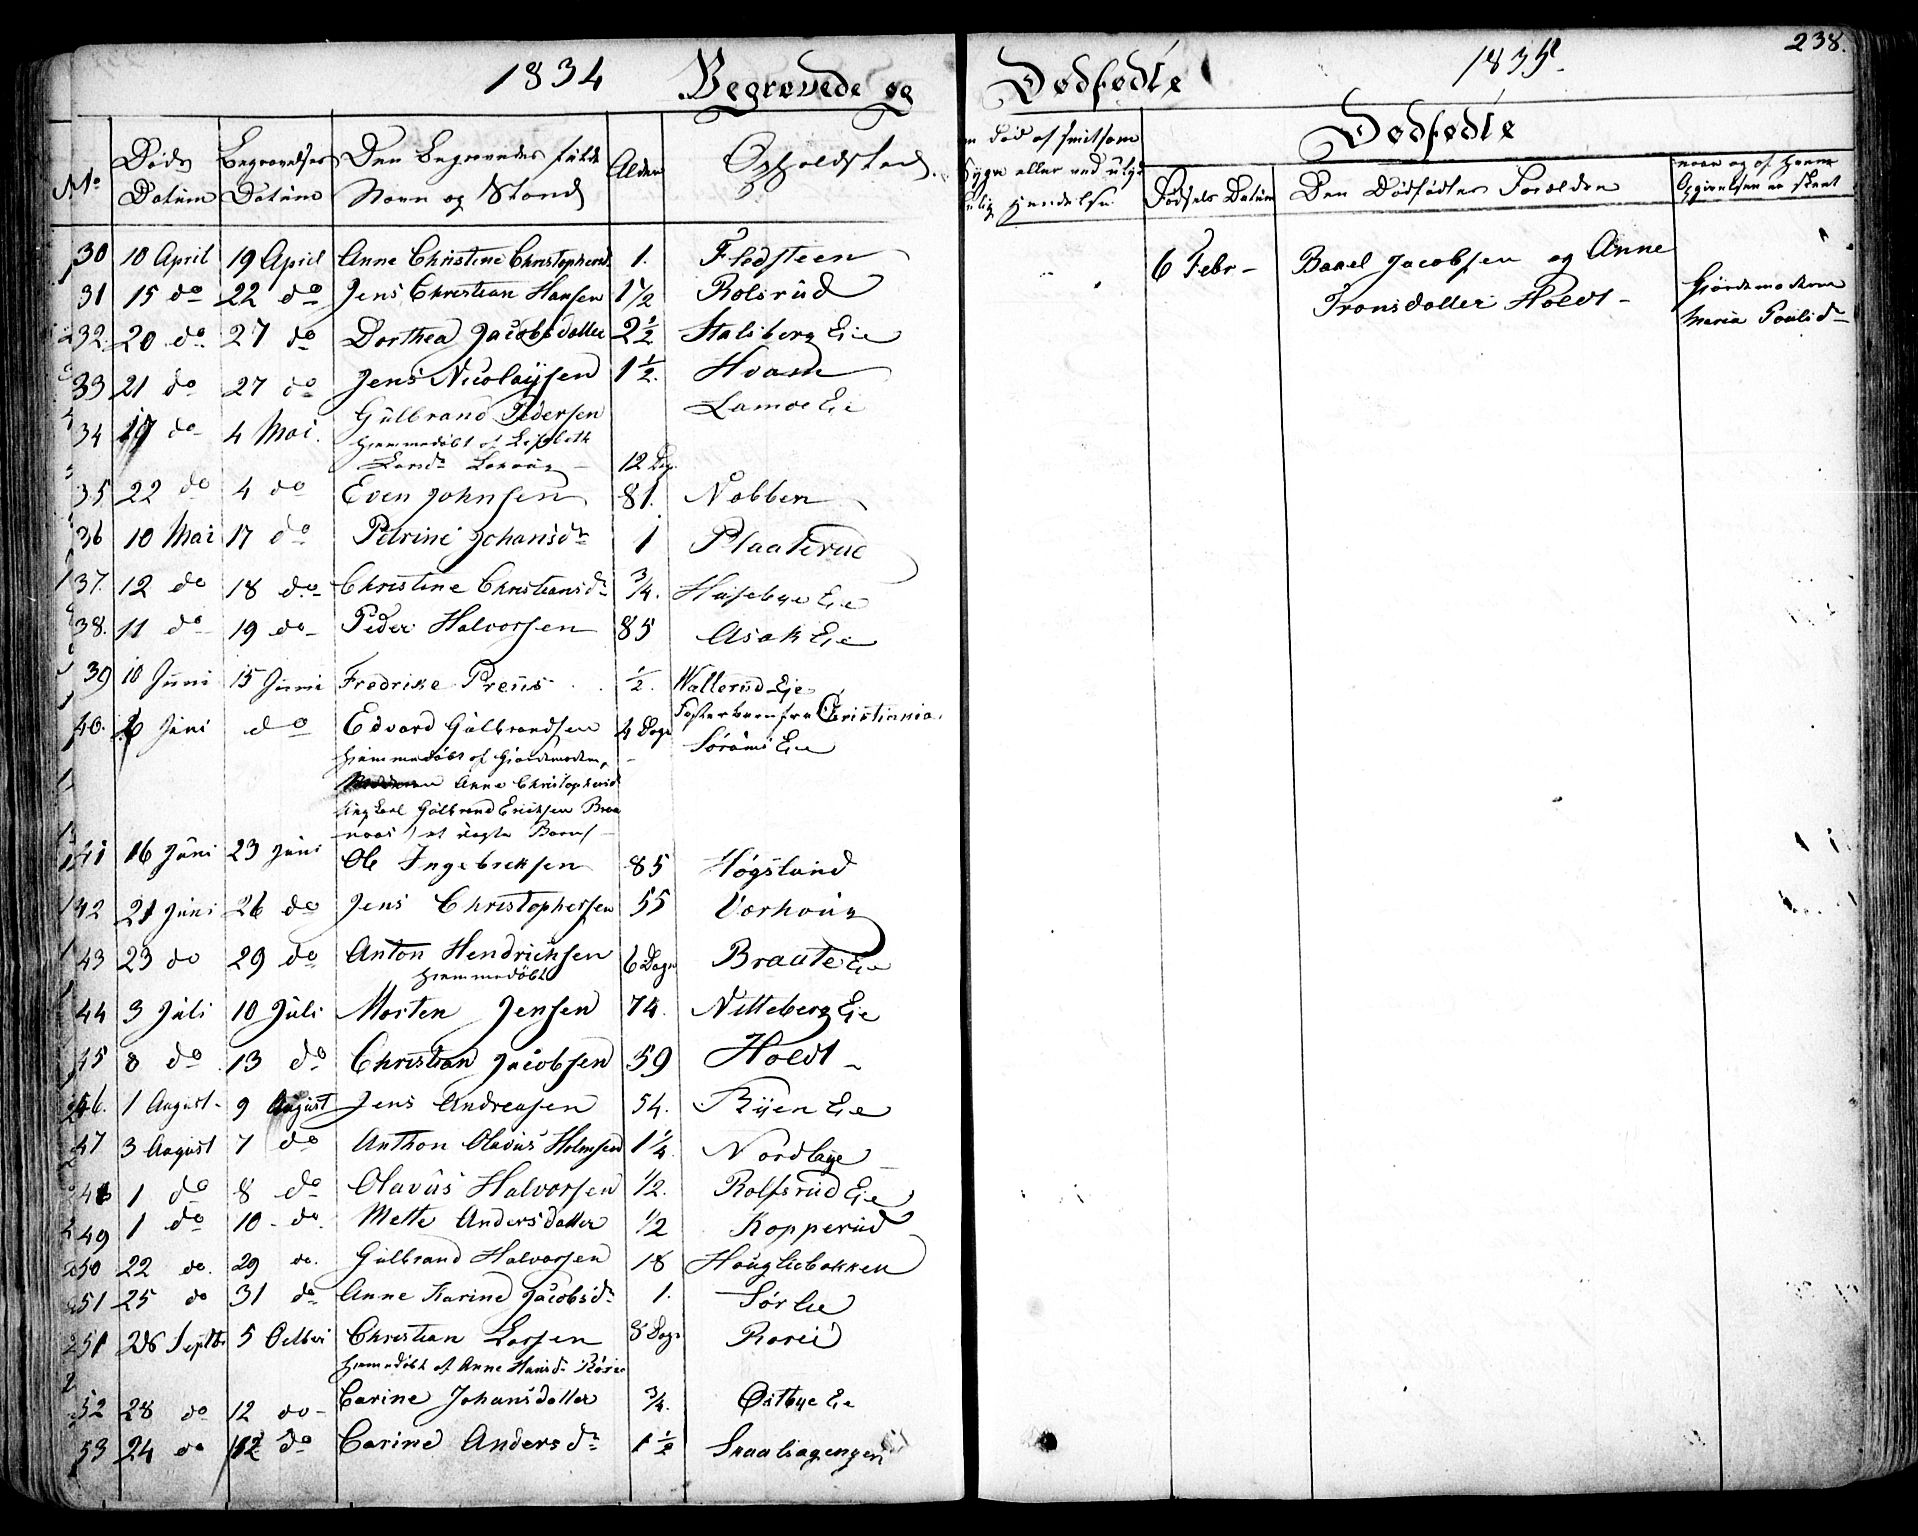 1834 Begravede og Dødfødte 1835. 238.
No Døds Datum Begravelses Datum Den Begravedes fulde Navn og Stand Alder Opholdsted
om død af smitsom Syge eller ved ulyk kelig Hændelse
Dødfødte
Fødsels Datum Den Dødfødtes Forældre naar og af hvem Opgivelsen er skeet
30 10 April 19 April Anne Christine Christophersd. 1. Fladsteen
31 15 do 22 do Jens Christian Hansen 1 1/2 Rolsrud
32. 20 do 27 do Dorthea Jacobsdatter 2 1/2 Stalsberg Eie
33 21 do 27 do Jens Nicolaysen 1 1/2. Hvam
34 17 do 4 Mai. Gulbrand Pedersen Lamoe Eie
hjemmedøbt af Lisebeth
Larsdr 12 Dag.
35 22 do 4 do Even Johnsen 81. Nobben
36 10 Mai 17 do Petrine Johansdr 1 Plaaterud
37. 12 do 18 do Christine Christiansdr 3/4. Husebye Eie
38. 11 do 19 do Peder Halvorsen 85 Asak Eie
39 10 Juni 15 Juni Fredrike Preus 1/2. Walterud Eje
Fosterbarn fra Christiania.
40. 6 Juni do Edvard Gulbrandsen 4 Dage Sørum Eie
hjemmedøbt af Gjordemoderen,
Anne Christophersd
Ungkarl Gulbrand Eriksen Braa
naas / et uægte Barn /
41 16 Juni 23 Juni Ole Ingebretsen 85 Høgslund
42 21 Juni 26 do Jens Christophersen 55 Varhoug
43 23 do 29 do Anton Hendrichsen 6 Dage Braate Eie
hjemmedøbt
44 3 Juli 10 Juli Morten Jensen 74. Nitteberg Eie
45 8 do 13 do Christian Jacobsen 59 Holdt
46. 1 August 9 August Jens Andreasen 54. Ryen Eie
47 3 August 7 do Anthon Olavus Holmsen 1 1/4. Nordbye
48 1 do 8 do Olavus Halvorsen 1/2. Rolfsrud Eie
49 1 do 10 do. Mette Andersdatter 1/2 Kopperud
50 22 do. 29 do. Gulbrand Halvorsen 18 Hougliebakken
51 25 do 31 do Anne Karine Jacobsdr 1. Sørlie
51 26 Septbr 5 Octber Christian Larsen 8 Dage
hjemedøbt af Anne Hansdr
52 28 do 12 do Carine Johansdatter 3/4. Østbye Eie
53 24 do 12 do Carine Andersdr 1 1/2
6 Febr Jacobsen og Anne
Tronsdatter Holdt
Gjordemoderen
Maria Paulsd